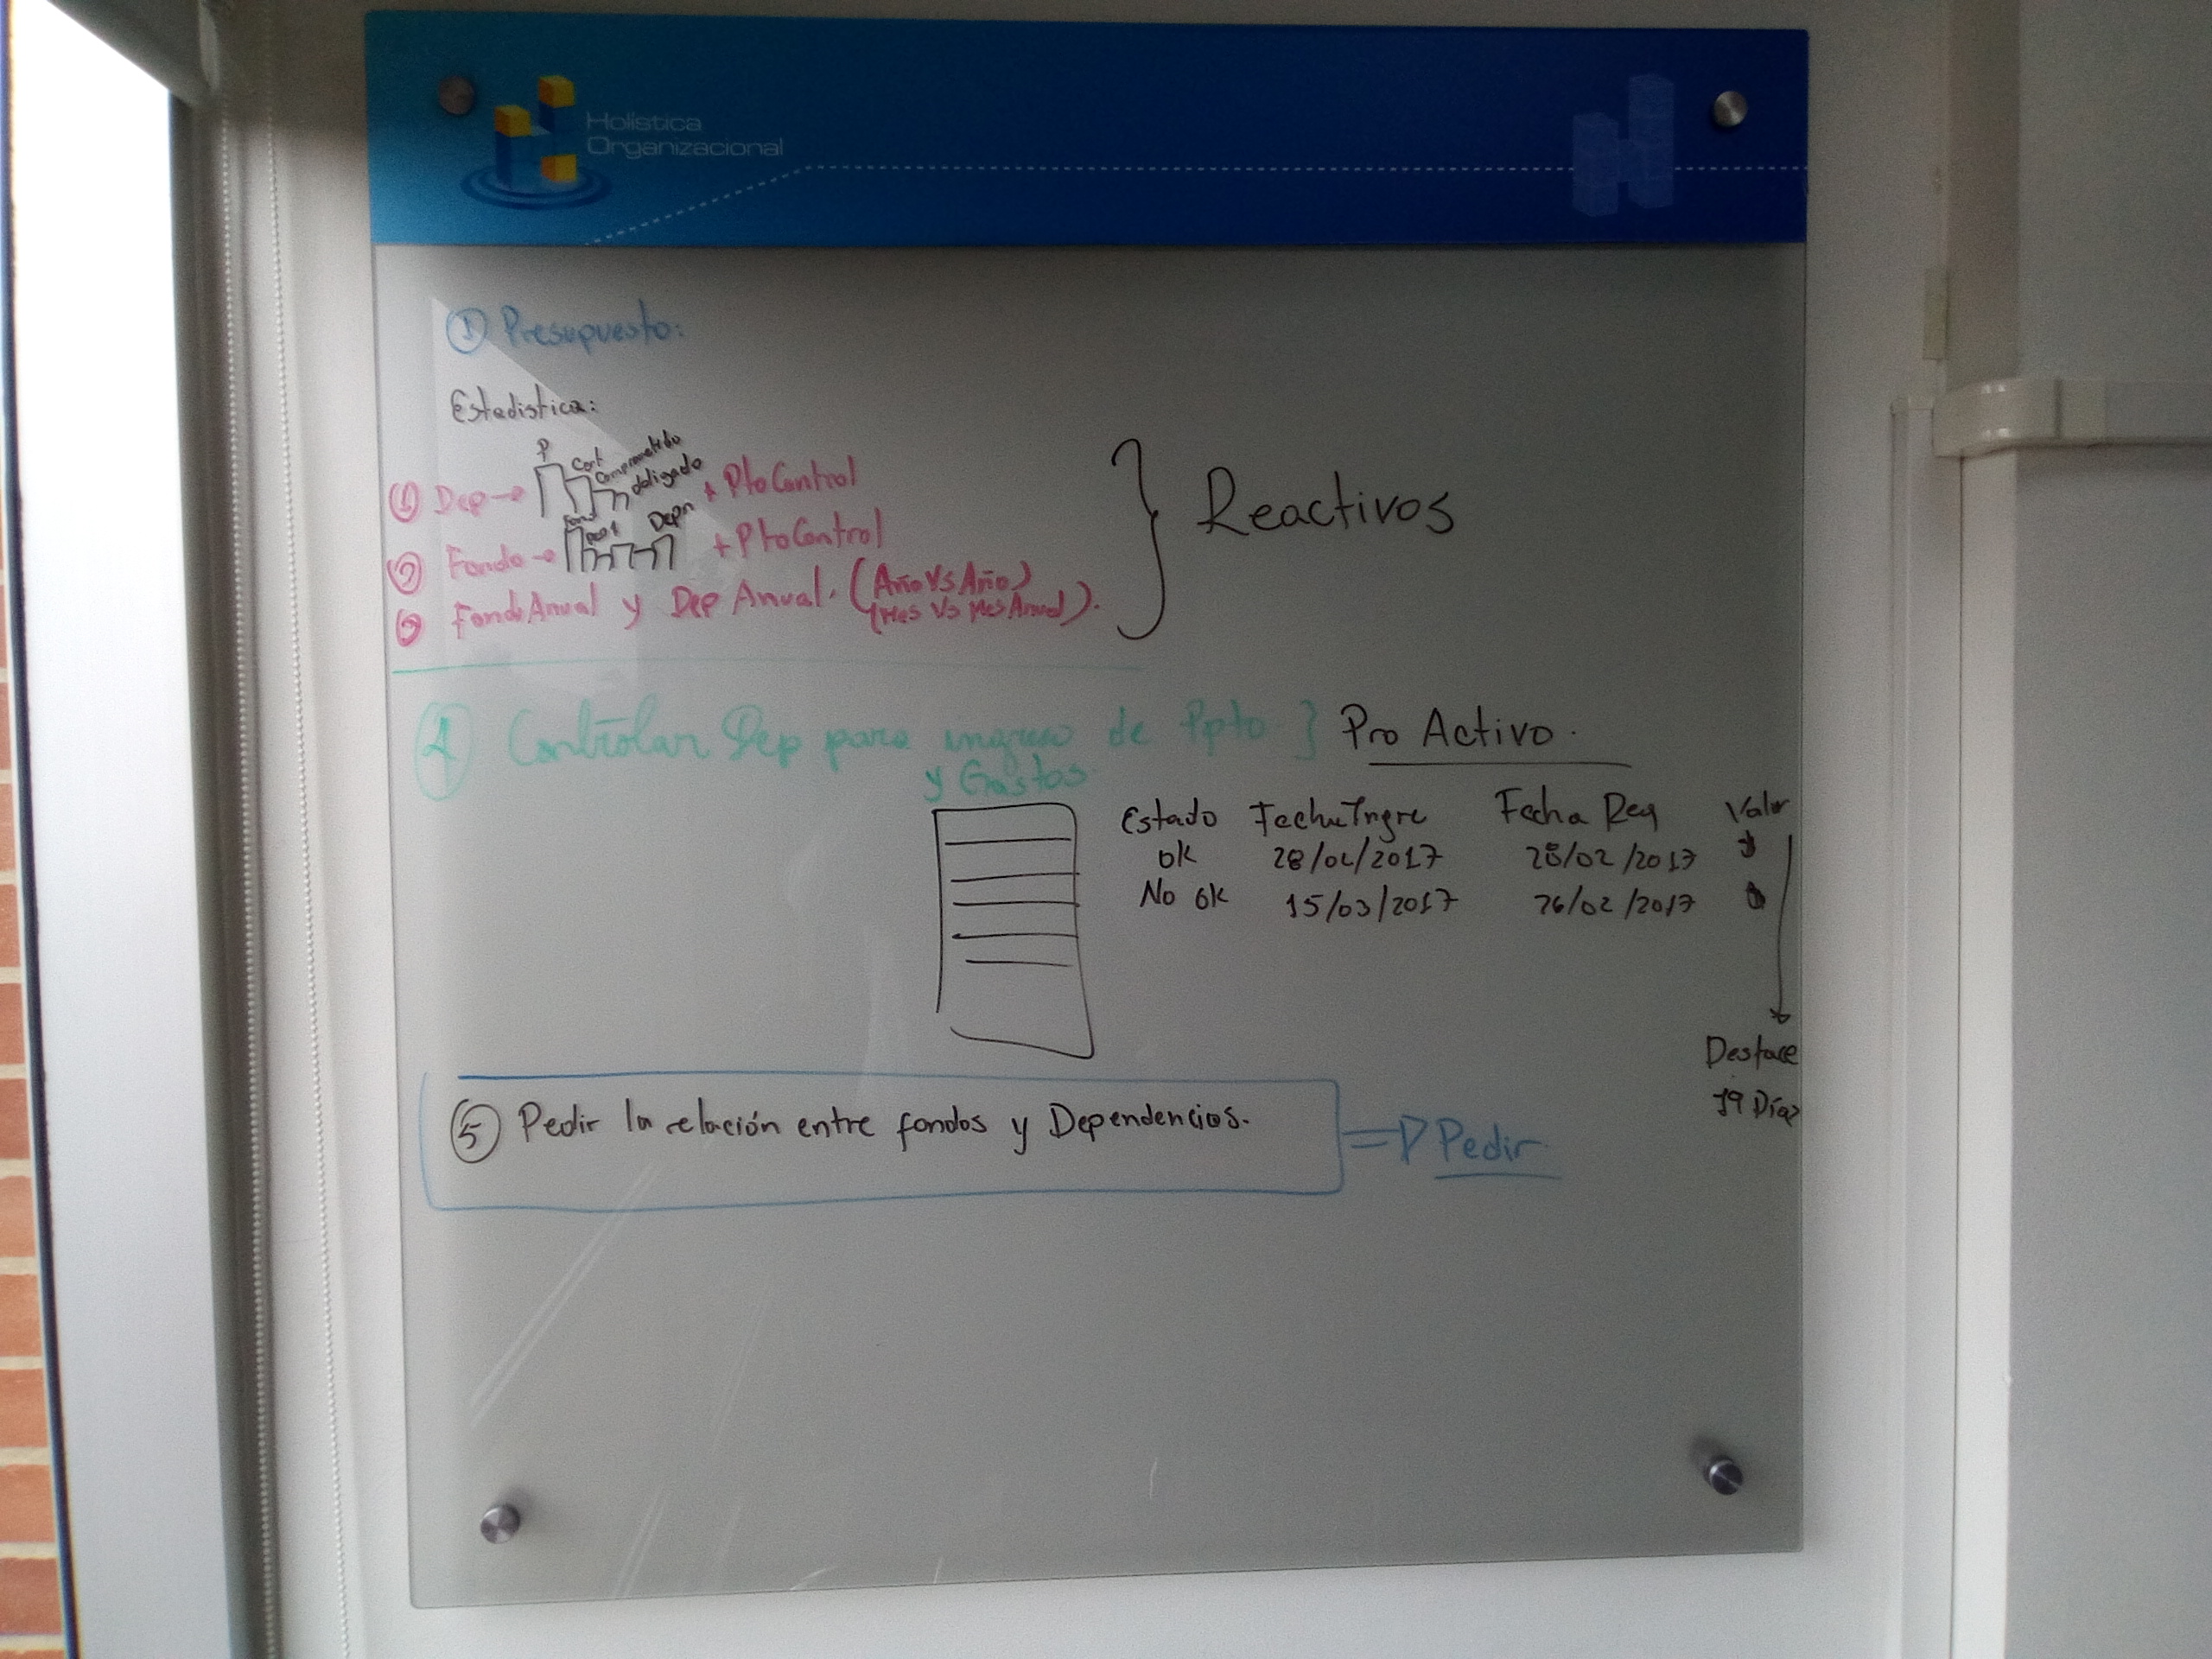 Holística
Organizacional
① Presupuesto:
Estadistica:
P
Cert
Comprometido
obligado
① Dep → + Pto Control
Fond
Dep1
Depn
② Fondo → + Pto Control
③ Fondo Anual y Dep Anual. (Año Vs Año)
(Mes Vs Mes Anual).
} Reactivos
④ Controlar Dep para ingreso de Ppto } Pro Activo.
y Gastos
Estado Fecha Ingre Fecha Req Valor
ok 28/02/2017 28/02/2017
No ok 15/03/2017 26/02/2017
Desface
19 Días
⑤ Pedir la relación entre fondos y Dependencias. => Pedir